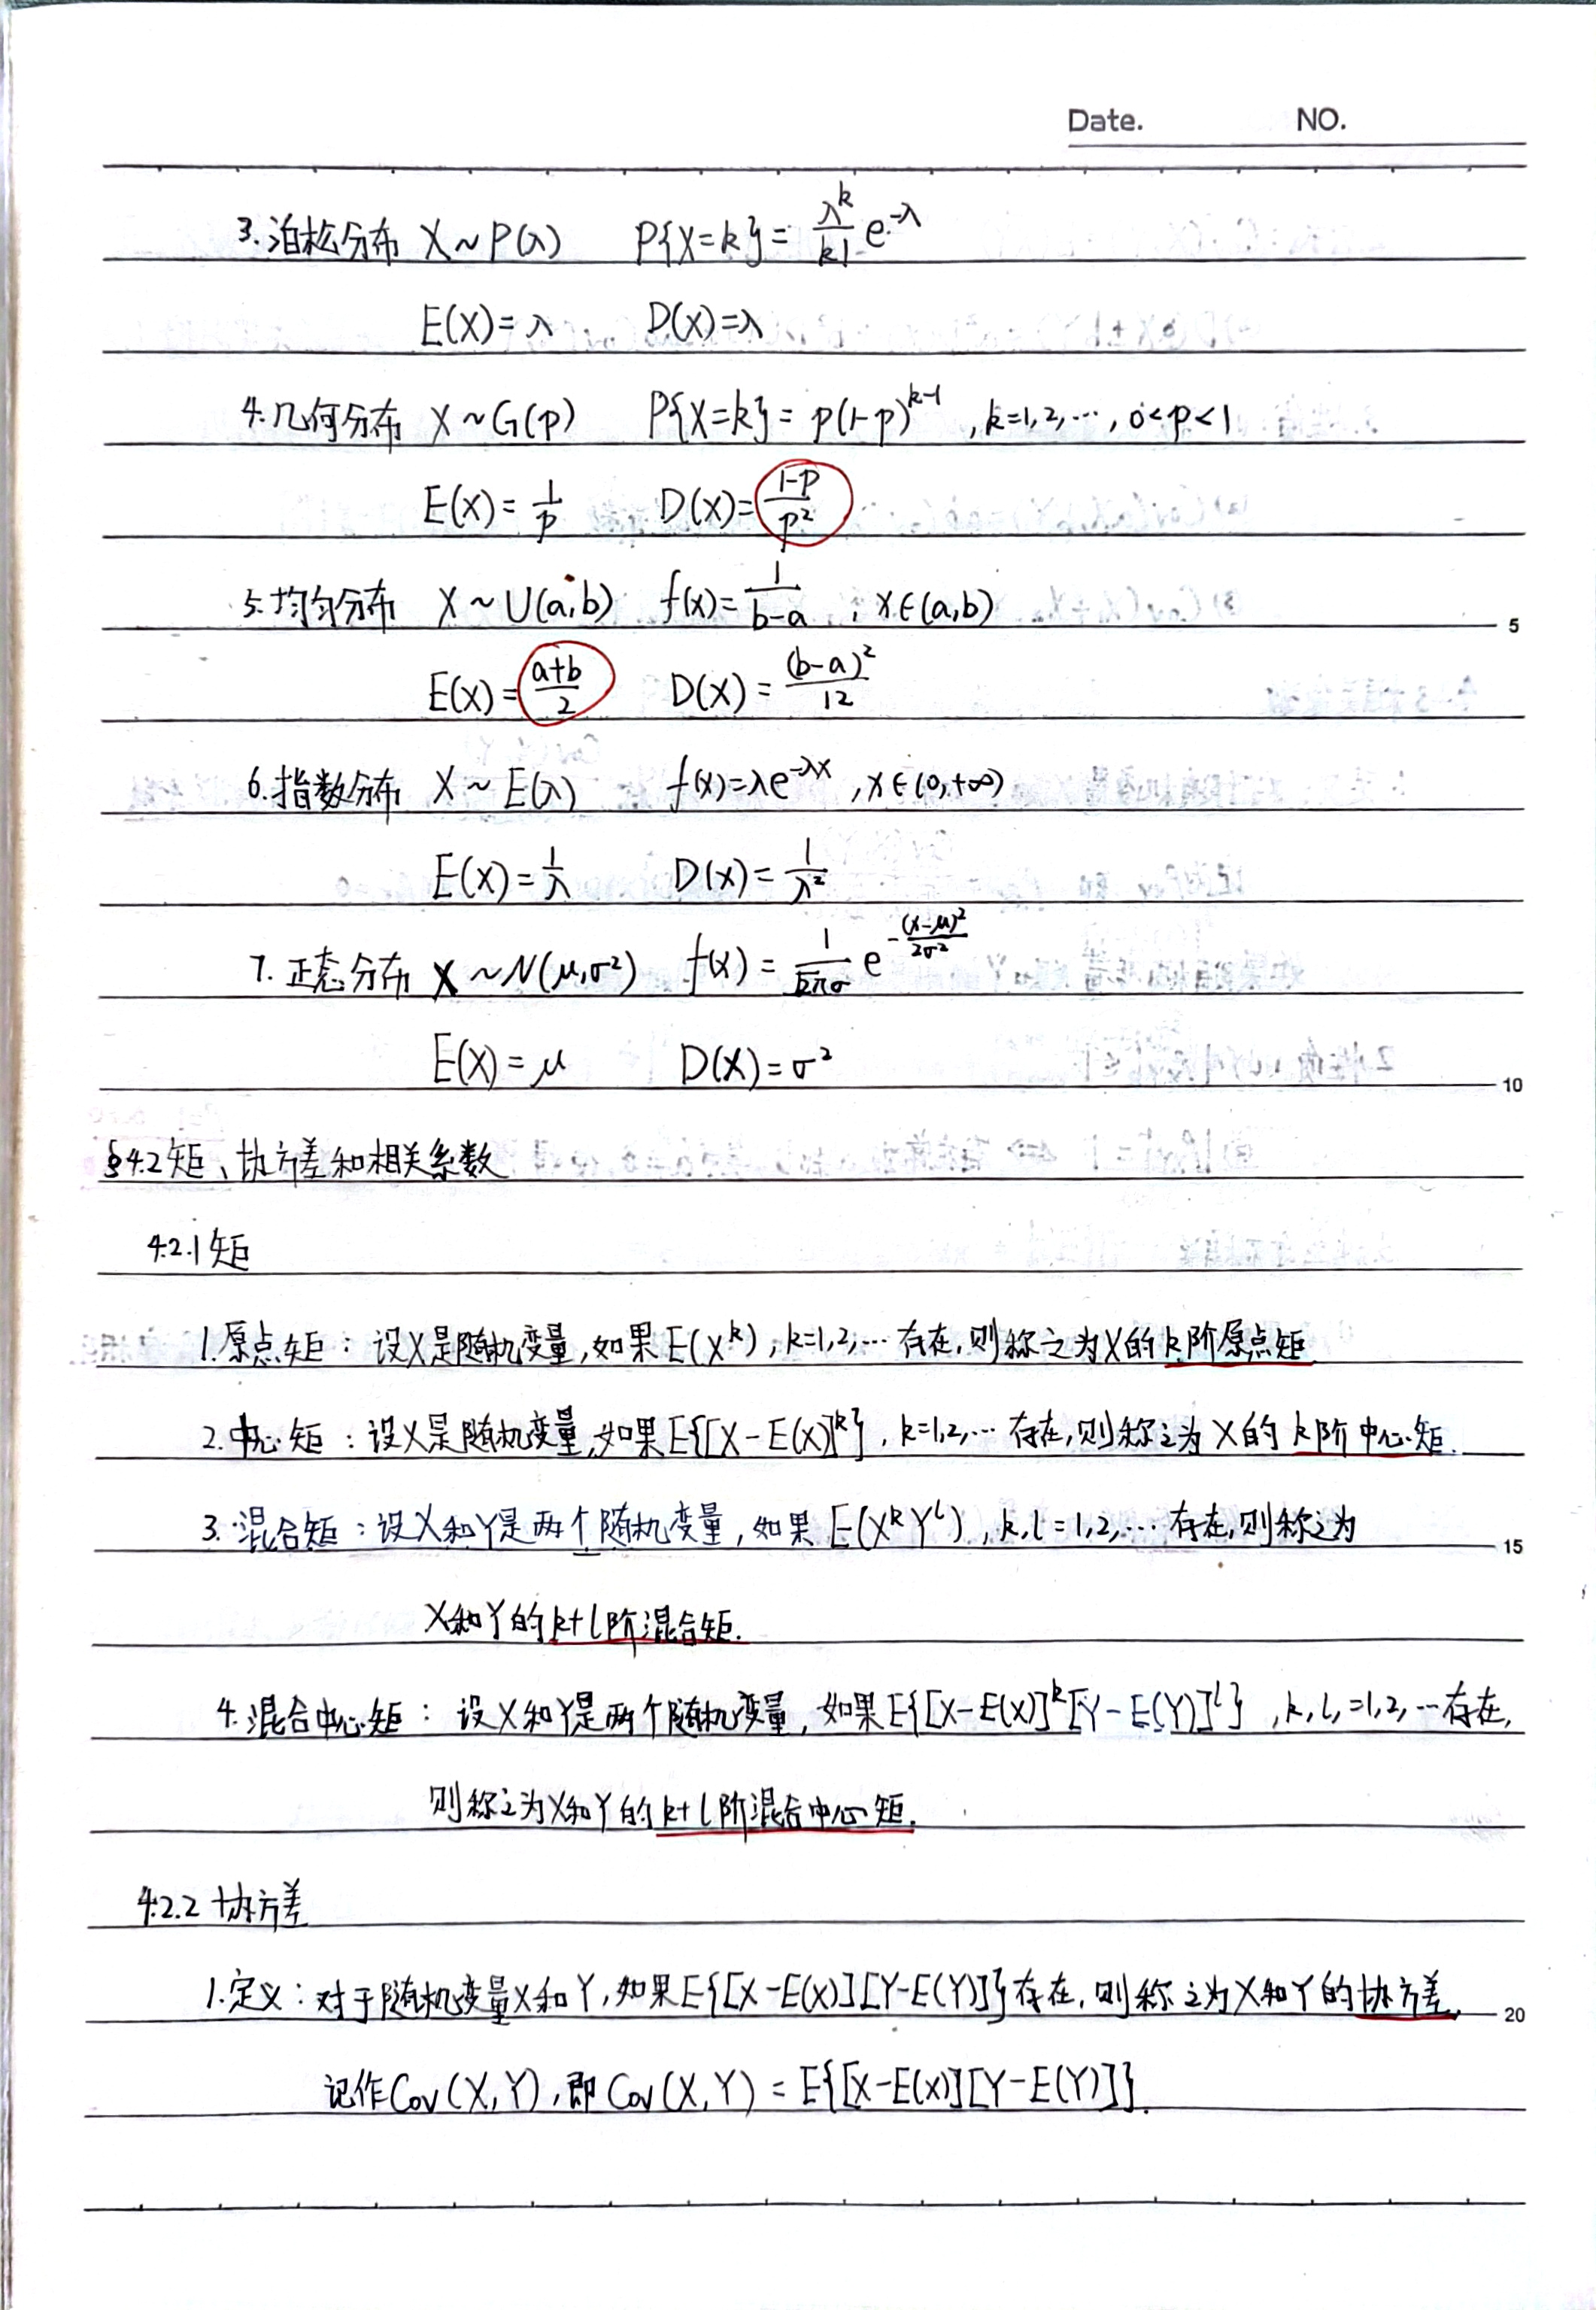 Date. NO.
3. 泊松分布 X~P(λ) P{X=k} = λ^k/k! e^-λ
E(X)=λ D(X)=λ
4. 几何分布 X~G(p) P{X=k} = p(1-p)^k-1 , k=1,2,…, 0<p<1
E(X)=1/p D(X)=(1-p)/p²
5. 均匀分布 X~U(a,b) f(x)=1/(b-a) , x∈(a,b)
5
E(X)=(a+b)/2 D(X)=(b-a)²/12
6. 指数分布 X~E(λ) f(x)=λe^-λx , x∈(0,+∞)
E(X)=1/λ D(X)=1/λ²
7. 正态分布 X~N(μ,σ²) f(x)=1/(√2π σ) e^-(x-μ)²/2σ²
E(X)=μ D(X)=σ²
10
§4.2 矩、协方差和相关系数
4.2.1 矩
1. 原点矩：设X是随机变量,如果E(X^k), k=1,2,…存在,则称之为X的k阶原点矩
2. 中心矩：设X是随机变量,如果E{[X-E(X)]^k}, k=1,2,…存在,则称之为X的k阶中心矩.
3. 混合矩：设X和Y是两个随机变量,如果E(X^k Y^l), k,l=1,2,…存在,则称之为
15
X和Y的k+l阶混合矩.
4. 混合中心矩：设X和Y是两个随机变量,如果E{[X-E(X)]^k[Y-E(Y)]^l}, k,l,=1,2,…存在,
则称之为X和Y的k+l阶混合中心矩.
4.2.2 协方差
1. 定义：对于随机变量X和Y,如果E{[X-E(X)][Y-E(Y)]}存在,则称之为X和Y的协方差,
20
记作Cov(X,Y),即Cov(X,Y)=E{[X-E(X)][Y-E(Y)]}.